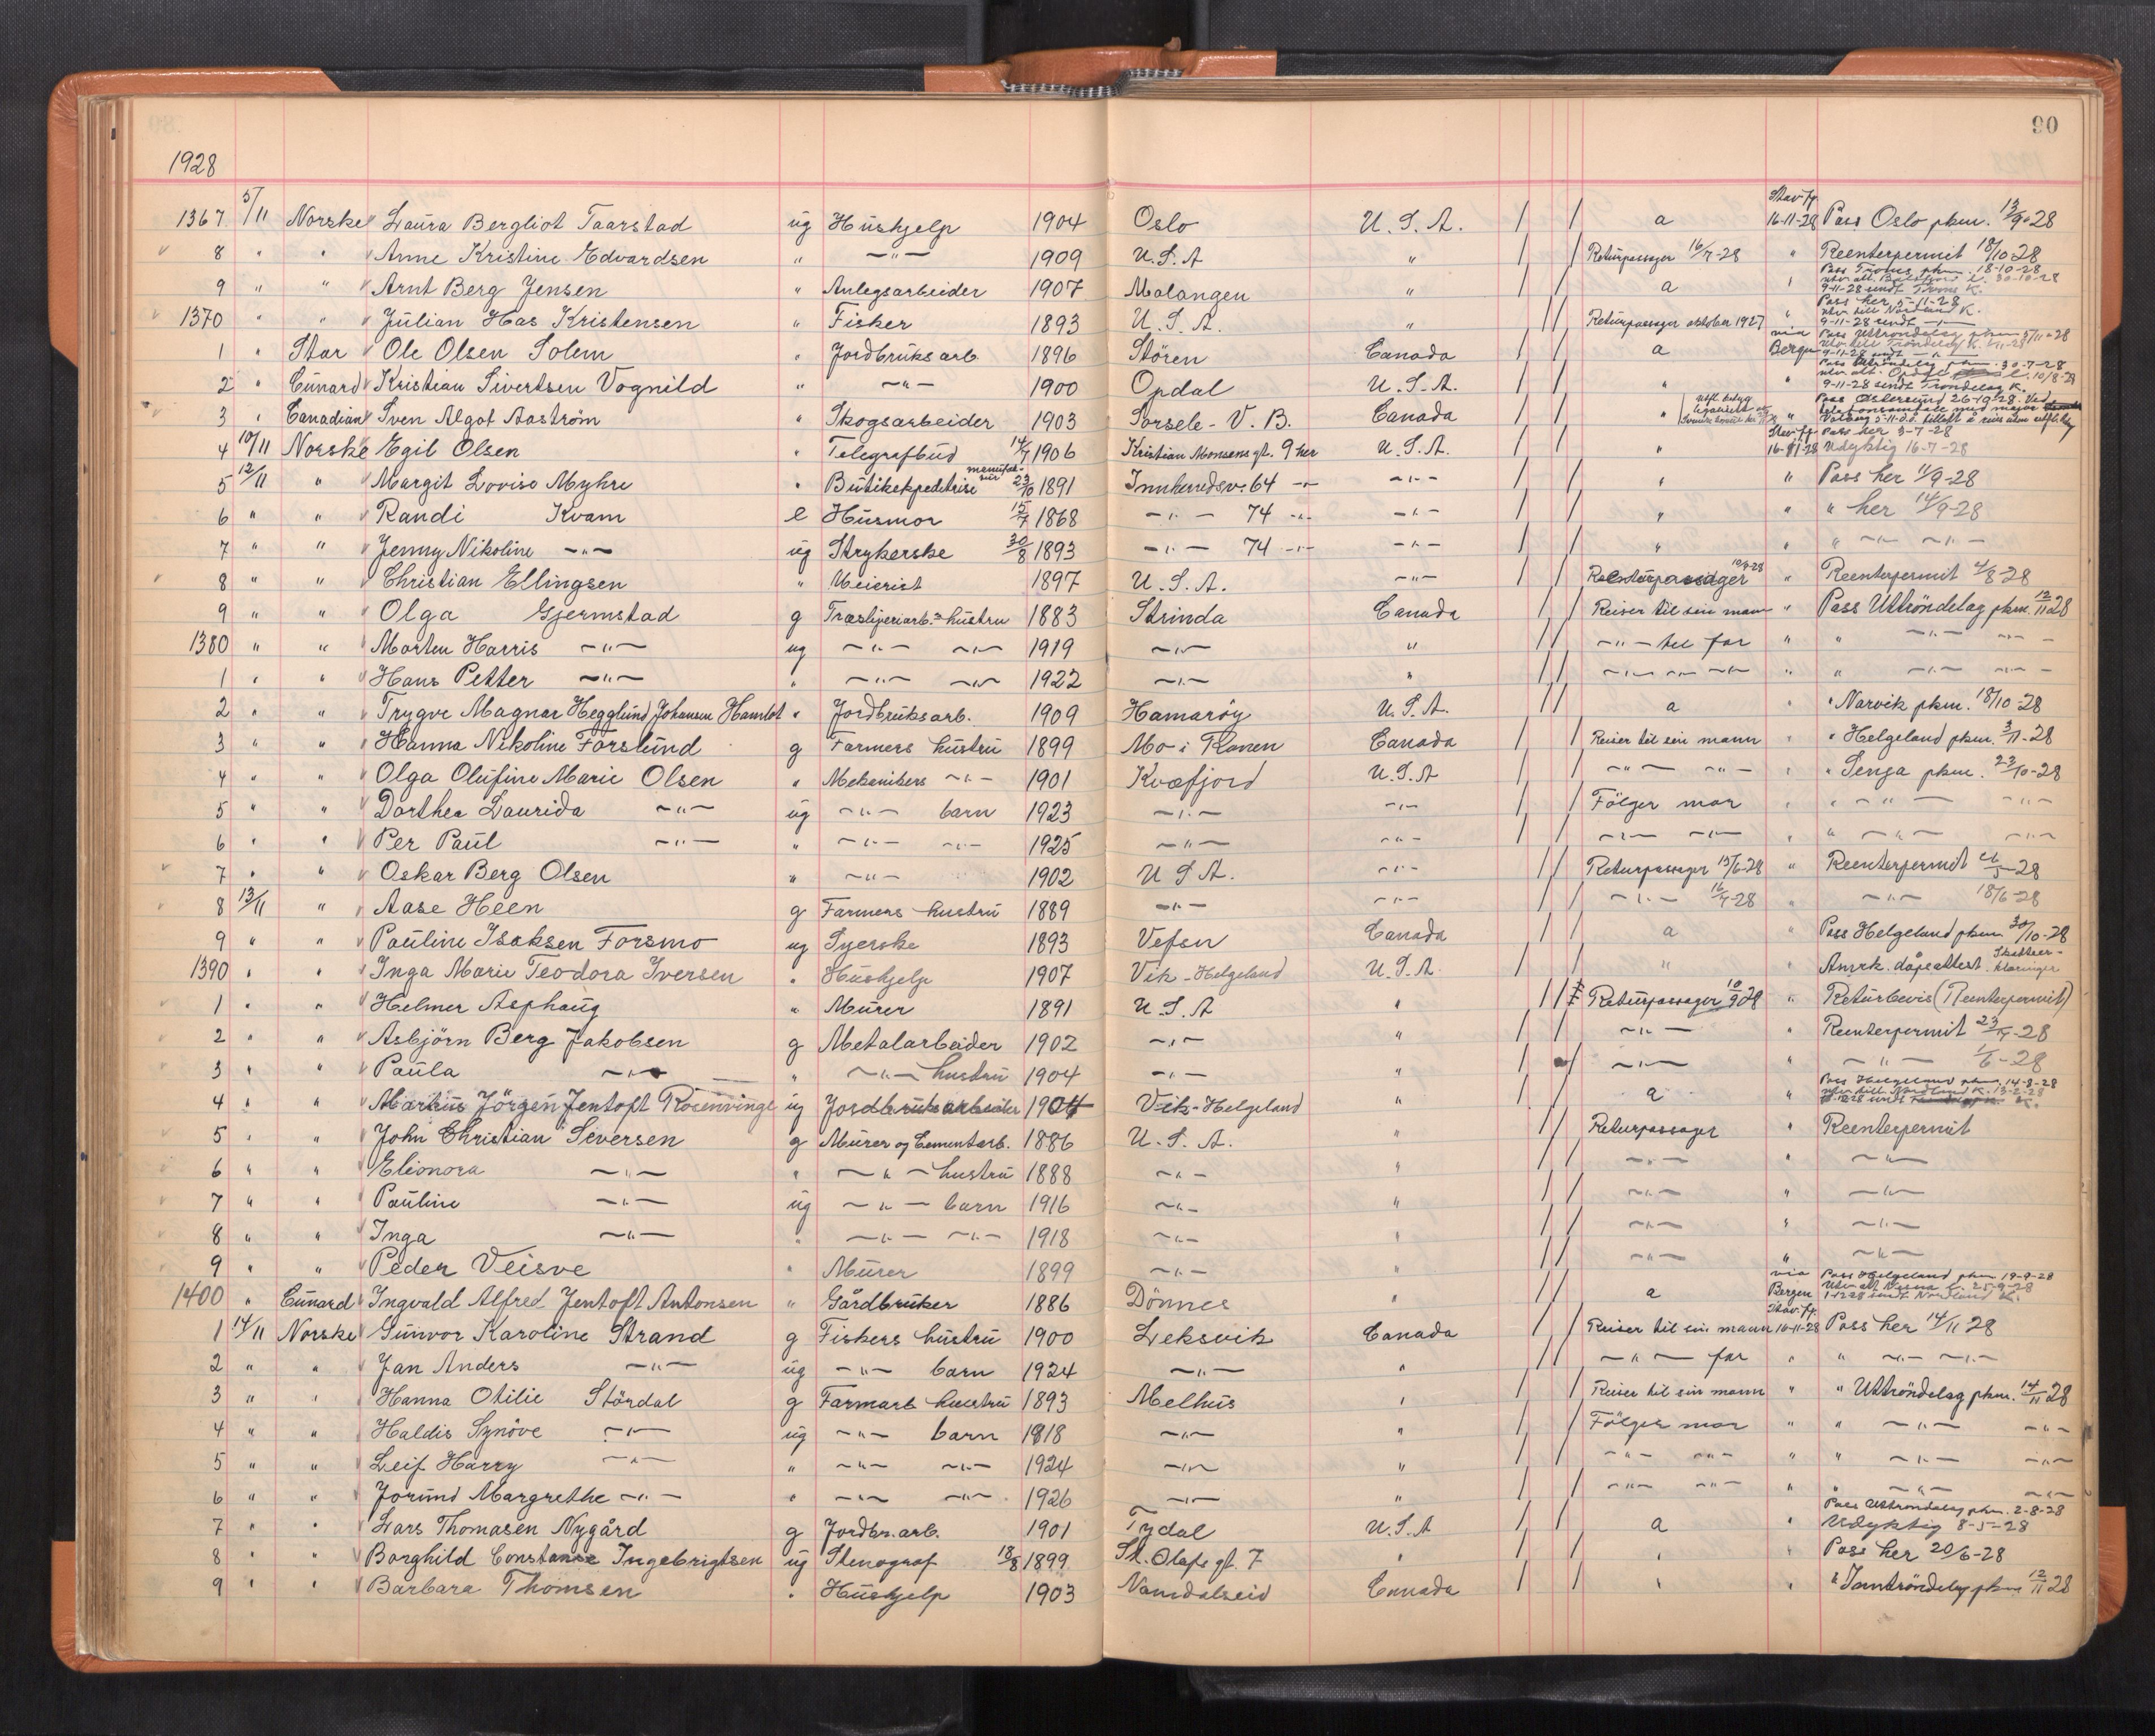 90
1928
1367 5/11 Norske Laura Bergliot Taarstad ug Hushjelp 1904 Oslo U.S.A. / / a Stav.fj. 16-11-28 Pass Oslo pkm. 13/9-28
8 " " Anne Kristine Edvardsen " —"— 1909 U.S.A " / / Returpassager 16/7-28 " Reenterpermit 18/10-28
9 " " Arnt Berg Jensen " Anlegsarbeider 1907 Malangen " / / a " Pass Troms pkm. 18-10-28 9-11-28 sendt Troms K.
1370 " " Julian Has Kristensen " Fisker 1893 U.S.A. " / / Returpassager oktober 1927 " Pass her 5-11-28 utv. till Nordland K. 9-11-28 sendt —"—
1 " Star Ole Olsen Solem " Jordbruksarb. 1896 Stören Canada / / a via Bergen Pass Uttröndelag pkm 5/11-28
2 " Cunard Kristian Sivertsen Vognild " —"— 1900 Opdal U.S.A. / / " " Pass Uttröndelag pkm. 30-7-28 utv. att. Opdal 10/8-28 9-11-28 sendt Tröndelag K.
3 " Canadian Sven Algot Aaström " Skogsarbeider 1903 Sorsele - V. B. Canada / / " " Pass Östersund 26-9-28. Ved telefonsamtale med major
4 10/11 Norske Egil Olsen " Telegrafbud 14/7 1906 Kristian Monsens gt. 9 her U.S.A. / / " Stav.fj. 16-11-28 Pass her 3-7-28 Udyktig 16-7-28
5 12/11 " Margit Lovise Myhre " Butikekpeditrise manufaktur 23/10 1891 Innherredsv. 64 —"— —"— / / " " Pass her 11/9-28
6 " " Randi Kvam e Husmor 15/7 1868 —"— 74 —"— —"— / / " " " her 14/9-28
7 " " Jenny Nikoline —"— ug Strykerske 30/8 1893 —"— 74 —"— —"— / / " " " —"— —"—
8 " " Christian Ellingsen " Meierist 1897 U.S.A. —"— / / Returpassager " Reenterpermit 4/8-28
9 " " Olga Gjermstad g Træsliperiarb.s hustru 1883 Strinda Canada / / Reiser til sin mann " Pass Uttröndelag pkm. 12/11 28
1380 " " Morten Harris —"— ug —"— —"— 1919 —"— " / / —"— til far " " —"— —"—
1 " " Hans Petter —"— " —"— —"— 1922 —"— " / / —"— —"— —"— " " —"— —"—
2 " " Trygve Magnar Hegglund Johansen Hamsot " Jordbruksarb. 1909 Hamaröy U.S.A. / / a " " Narvik pkm. 18/10-28
3 " " Hanna Nikoline Forslund g Farmers hustru 1899 Mo i Ranen Canada / / Reiser til sin mann " " Helgeland pkm. 3/11-28
4 " " Olga Olufine Marie Olsen " Mekanikers —"— 1901 Kvæfjord U.S.A / / —"— —"— " " Senja pkm. 23/10-28
5 " " Dorthea Laurida —"— ug —"— barn 1923 —"— —"— / / Fölger mor " " —"— —"—
6 " " Per Paul —"— " —"— —"— 1925 —"— —"— / / —"— —"— " " —"— —"—
7 " " Oskar Berg Olsen " —"— 1902 U S A. —"— / / Returpassager 15/6-28 " Reenterpermit 26/5-28
8 13/11 " Aase Heen g Farmers hustru 1889 —"— —"— / / —"— 16/7-28 " —"— 18/6-28
9 " " Pauline Isaksen Forsmo ug Syerske 1893 Vefsn Canada / / a " Pass Helgeland pkm 30/10-28
1390 " " Inga Marie Teodora Iversen " Hushjelp 1907 Vik - Helgeland U.S.A. / / " " Amrk. dåpsattest.
1 " " Helmer Asphaug " Murer 1891 U.S.A " / / Returpassager 10/9 28 " Returbevis (Reenterpermit)
2 " " Asbjörn Berg Jakobsen g Metalarbeider 1902 —"— " / / —"— " Reenterpermit 23/4-28
3 " " Paula —"— " —"— hustru 1904 —"— " / / —"— " —"— 1/6-28
4 " " Markus Jörgen Jentoft Rosenvinge ug Jordbruksarbeider 1904 Vik - Helgeland " / / a " Pass Helgeland pkm. 14-8-28
5 " " John Christian Seversen g Murer og Cementarb. 1886 U.S.A. " / / Returpassager " Reenterpermit
6 " " Elionora —"— " —"— hustru 1888 —"— " / / —"— " —"—
7 " " Pauline —"— ug —"— barn 1916 —"— " / / —"— " —"—
8 " " Inga —"— " —"— —"— 1918 —"— " / / —"— " —"—
9 " " Peder Veisve " Murer 1899 —"— " / / —"— " —"—
1400 " Cunard Ingvald Alfred Jentoft Antonsen " Gårdbruker 1886 Dönnes " / / a via Bergen Pass Helgeland pkm 19-9-28
1 14/11 Norske Gunvor Karoline Strand g Fiskers hustru 1900 Leksvik Canada / / Reiser til sin mann Stav.fj. 16-11-28 Pass her 14/11 28
2 " " Jan Anders —"— ug —"— barn 1924 —"— " / / —"— far " " —"— —"—
3 " " Hanna Otilie Stördal g Farmarb hustru 1893 Melhus " / / Reiser til sin mann " " Uttröndelag pkm. 14/11 28
4 " " Haldis Synöve —"— ug —"— barn 1918 —"— " / / Fölger mor " " —"— —"—
5 " " Leif Harry —"— " —"— —"— 1924 —"— " / / —"— —"— " " —"— —"—
6 " " Jorund Margrethe —"— " —"— —"— 1926 —"— " / / —"— —"— " " —"— —"—
7 " " Lars Thomasen Nygård g Jordbr.arb. 1901 Tydal U.S.A / / a " Pass Uttröndelag pkm. 2-8-28 Udyktig 8-5-28
8 " " Borghild Constanse Ingebrigtsen ug Stenograf 18/8 1899 St. Olafs gt. 7 " / / " " Pass her 20/6-28
9 " " Barbara Thomsen " Hushjelp 1903 Namdalseid Canada / / " " " Inntröndelag pkm 12/11 28